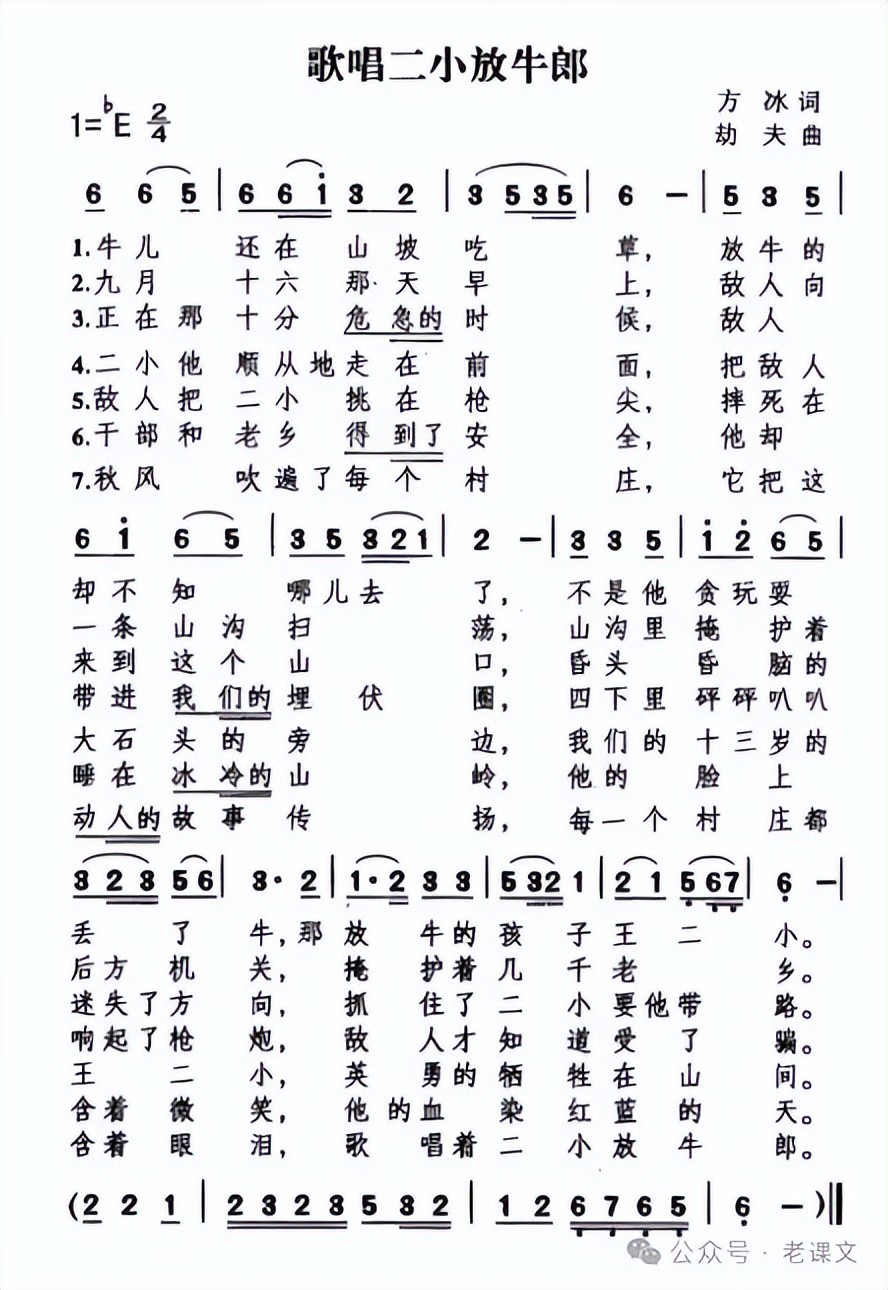 歌唱二小放牛郎
方冰词
1=♭E 2/4
劫夫曲
6 6 5 | 6 6 i 3 2 | 3 5 3 5 | 6 – | 5 3 5 |
1.牛儿 还在 山坡吃 草, 放牛的
2.九月 十六 那天早 上, 敌人向
3.正在那十分危急的时 候, 敌人
4.二小他 顺从地走在前 面, 把敌人
5.敌人把 二小 挑在枪 尖, 摔死在
6.干部和 老乡 得到了安 全, 他却
7.秋风 吹遍了每个村 庄, 它把这
6 i 6 5 | 3 5 3 2 1 | 2 – | 3 3 5 | i 2 6 5 |
却不知 哪儿去 了, 不是他 贪玩耍
一条山沟扫 荡, 山沟里掩护着
来到这个山 口, 昏头昏脑的
带进我们的埋伏 圈, 四下里砰砰叭叭
大石头的旁 边, 我们的十三岁的
睡在冰冷的山 岭, 他的脸上
动人的故事传 扬, 每一个村庄都
3 2 3 5 6 | 3· 2 | 1·2 3 3 | 5 3 2 1 | 2 1 5 6 7 | 6 – |
丢了牛,那放牛的孩子王二小。
后方机关, 掩护着几千老乡。
迷失了方向, 抓住了二小要他带路。
响起了枪炮, 敌人才知道受了骗。
王二小, 英勇的牺牲在山间。
含着微笑, 他的血染红蓝的天。
含着眼泪, 歌唱着二小放牛郎。
(2 2 1 | 2 3 2 3 5 3 2 | 1 2 6 7 6 5 | 6 –)‖
公众号·老课文